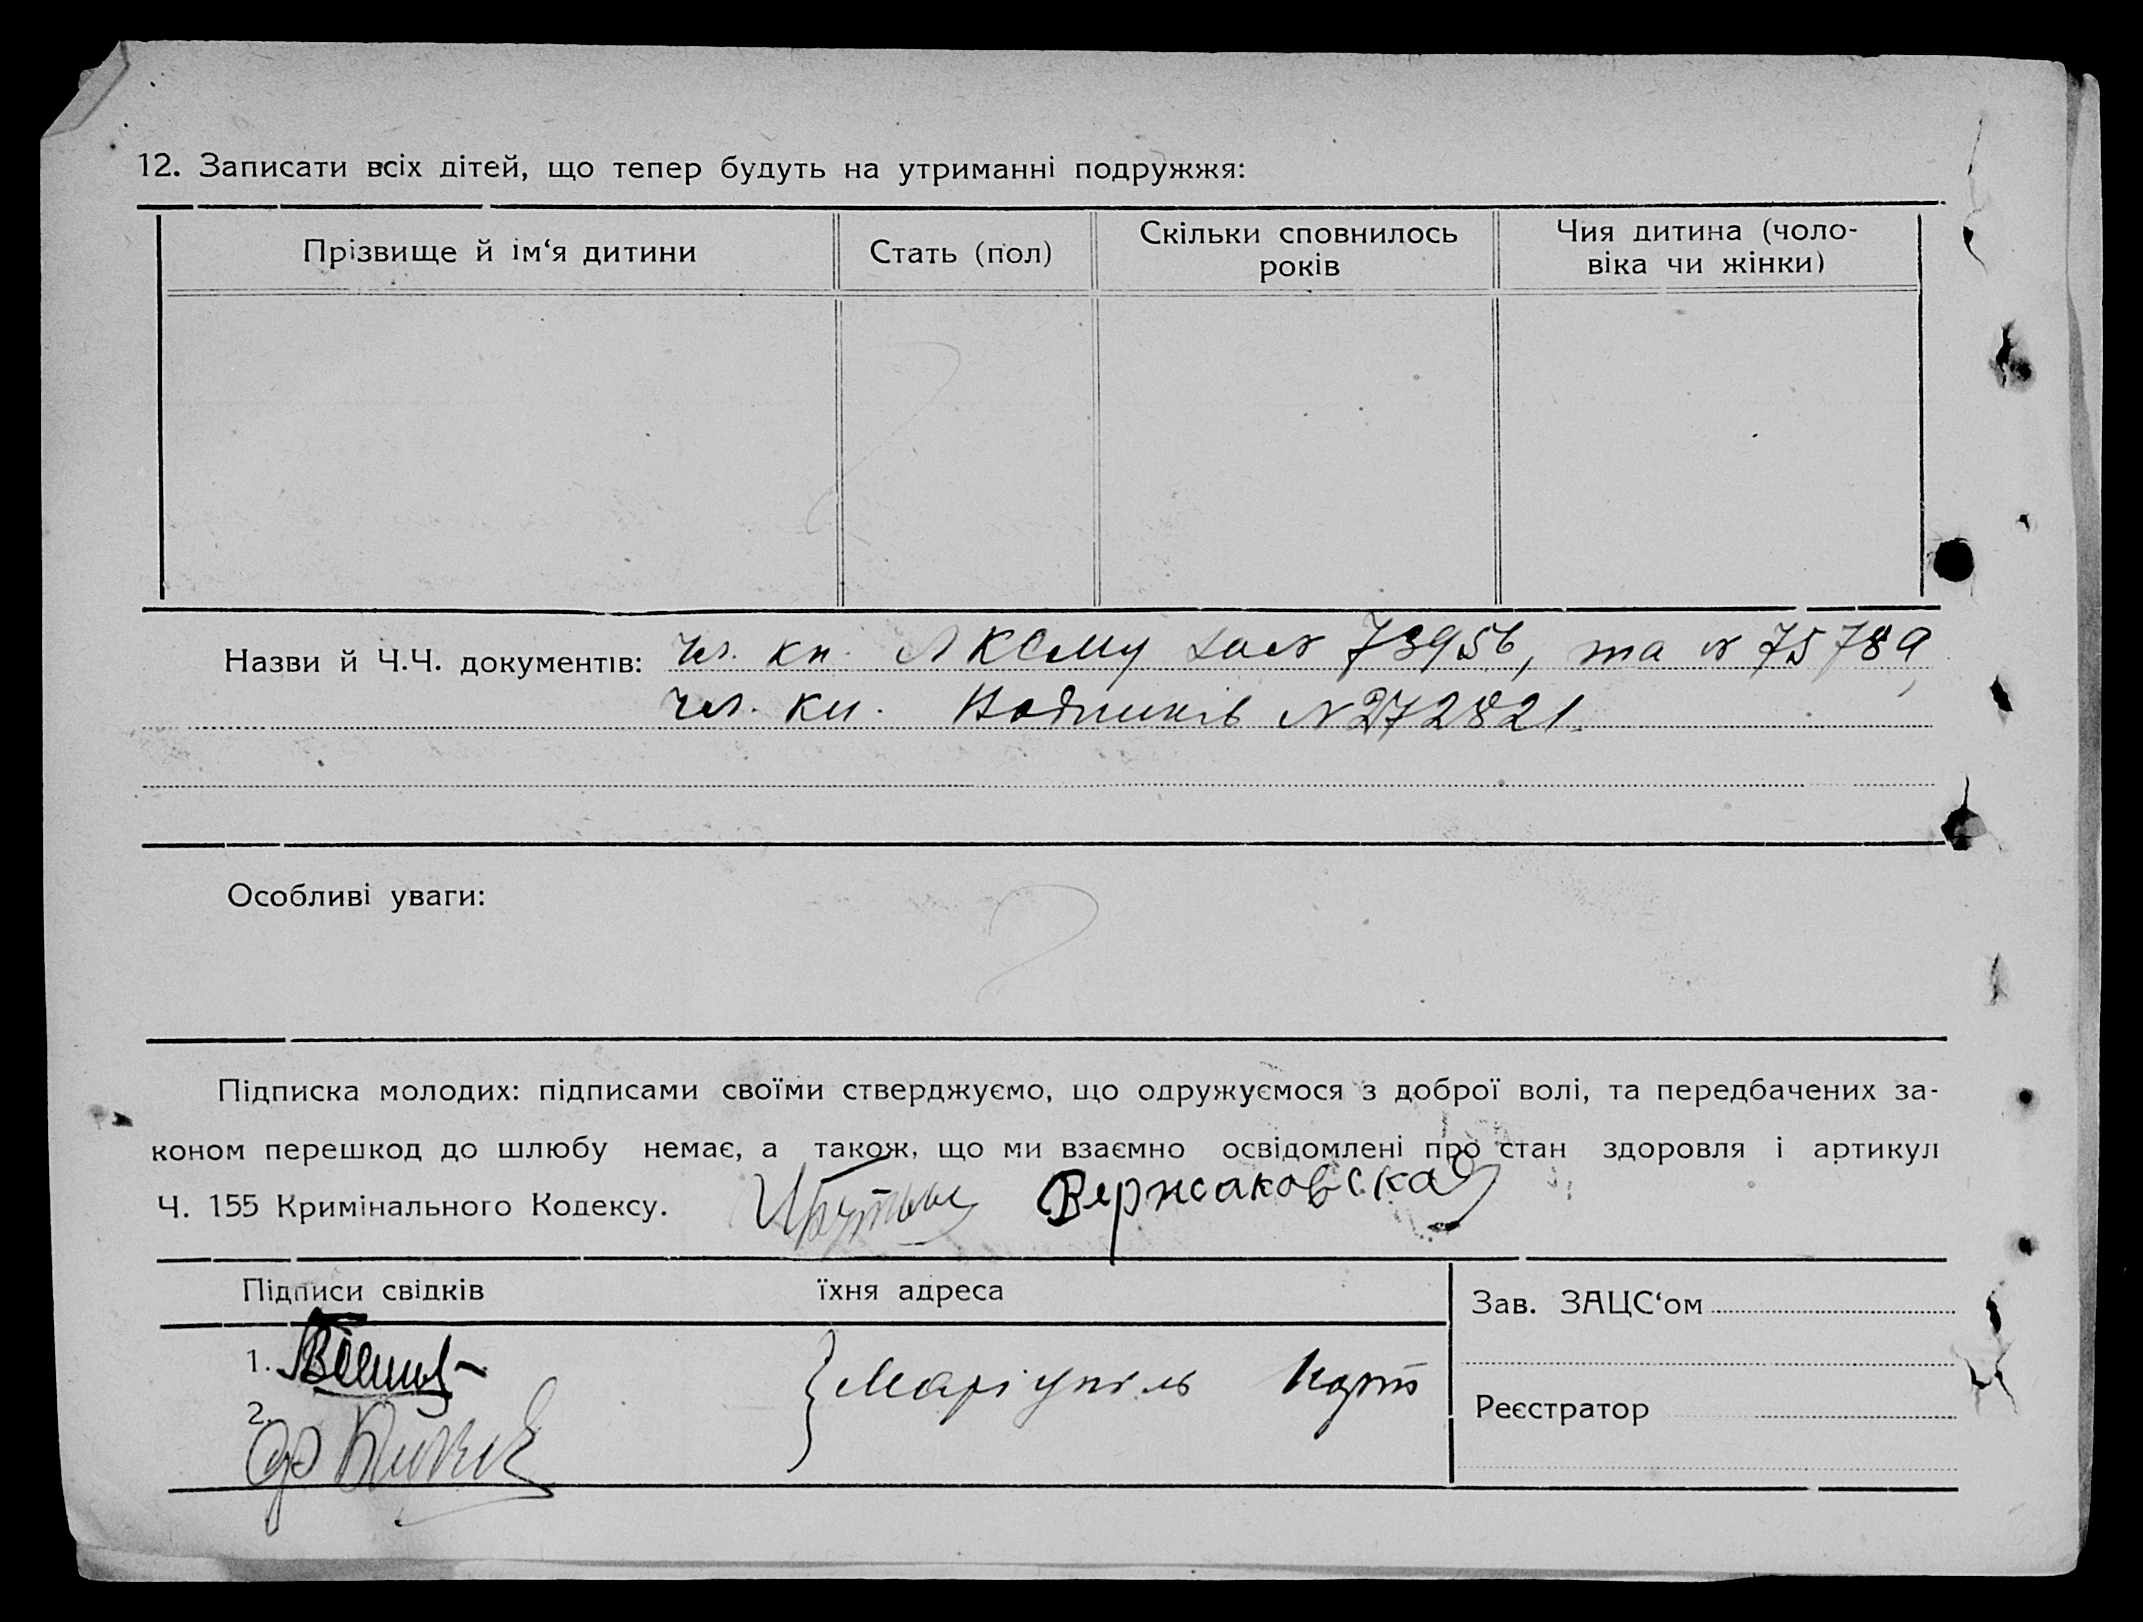 12. Записати всіх дітей, що тепер будуть на утриманні подружжя:
Прізвище й ім‘я дитини
Стать (пол)
Скільки сповнилось
років
Чия дитина (чоло-
віка чи жінки)
Назви й Ч.Ч. документів: чл. кн. ЛКСМУ за № 73956, та № 75789,
чл. кн. Водників № 272821.
Особливі уваги:
Підписка молодих: підписами своїми стверджуємо, що одружуємося з доброї волі, та передбачених за-
коном перешкод до шлюбу немає, а також, що ми взаємно освідомлені про стан здоровля і артикул
Ч. 155 Кримінального Кодексу. Вержаковская
Підписи свідків
їхня адреса
Зав. ЗАЦС‘ом
1.
Маріуполь порт
Реєстратор
2.